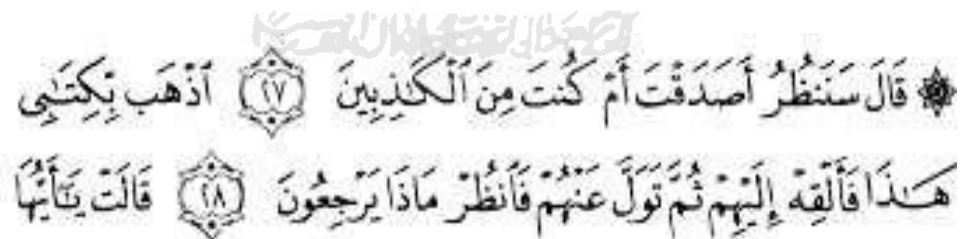 ۞ قَالَ سَنَنظُرُ أَصَدَقْتَ أَمْ كُنتَ مِنَ ٱلْكَـٰذِبِينَ ٢٧ ٱذْهَب بِّكِتَـٰبِى
هَـٰذَا فَأَلْقِهْ إِلَيْهِمْ ثُمَّ تَوَلَّ عَنْهُمْ فَٱنظُرْ مَاذَا يَرْجِعُونَ ٢٨ قَالَتْ يَـٰٓأَيُّهَا